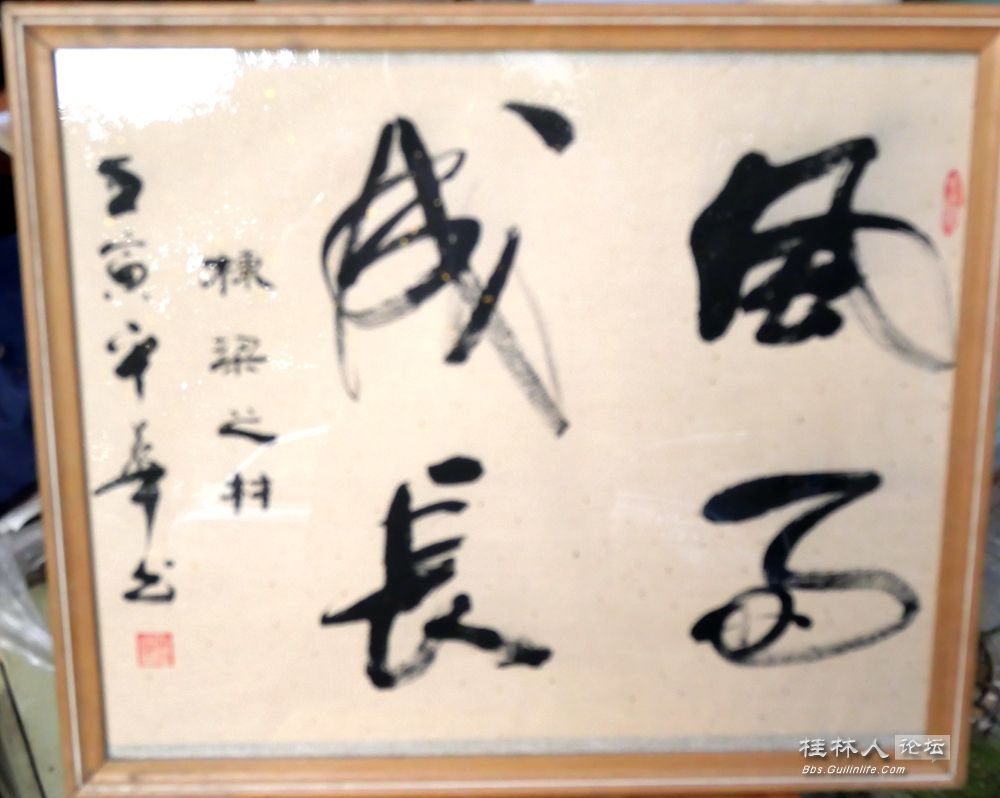 風雨
成長
棟梁之材
壬寅
桂林人论坛
Bbs.Guilinlife.Com